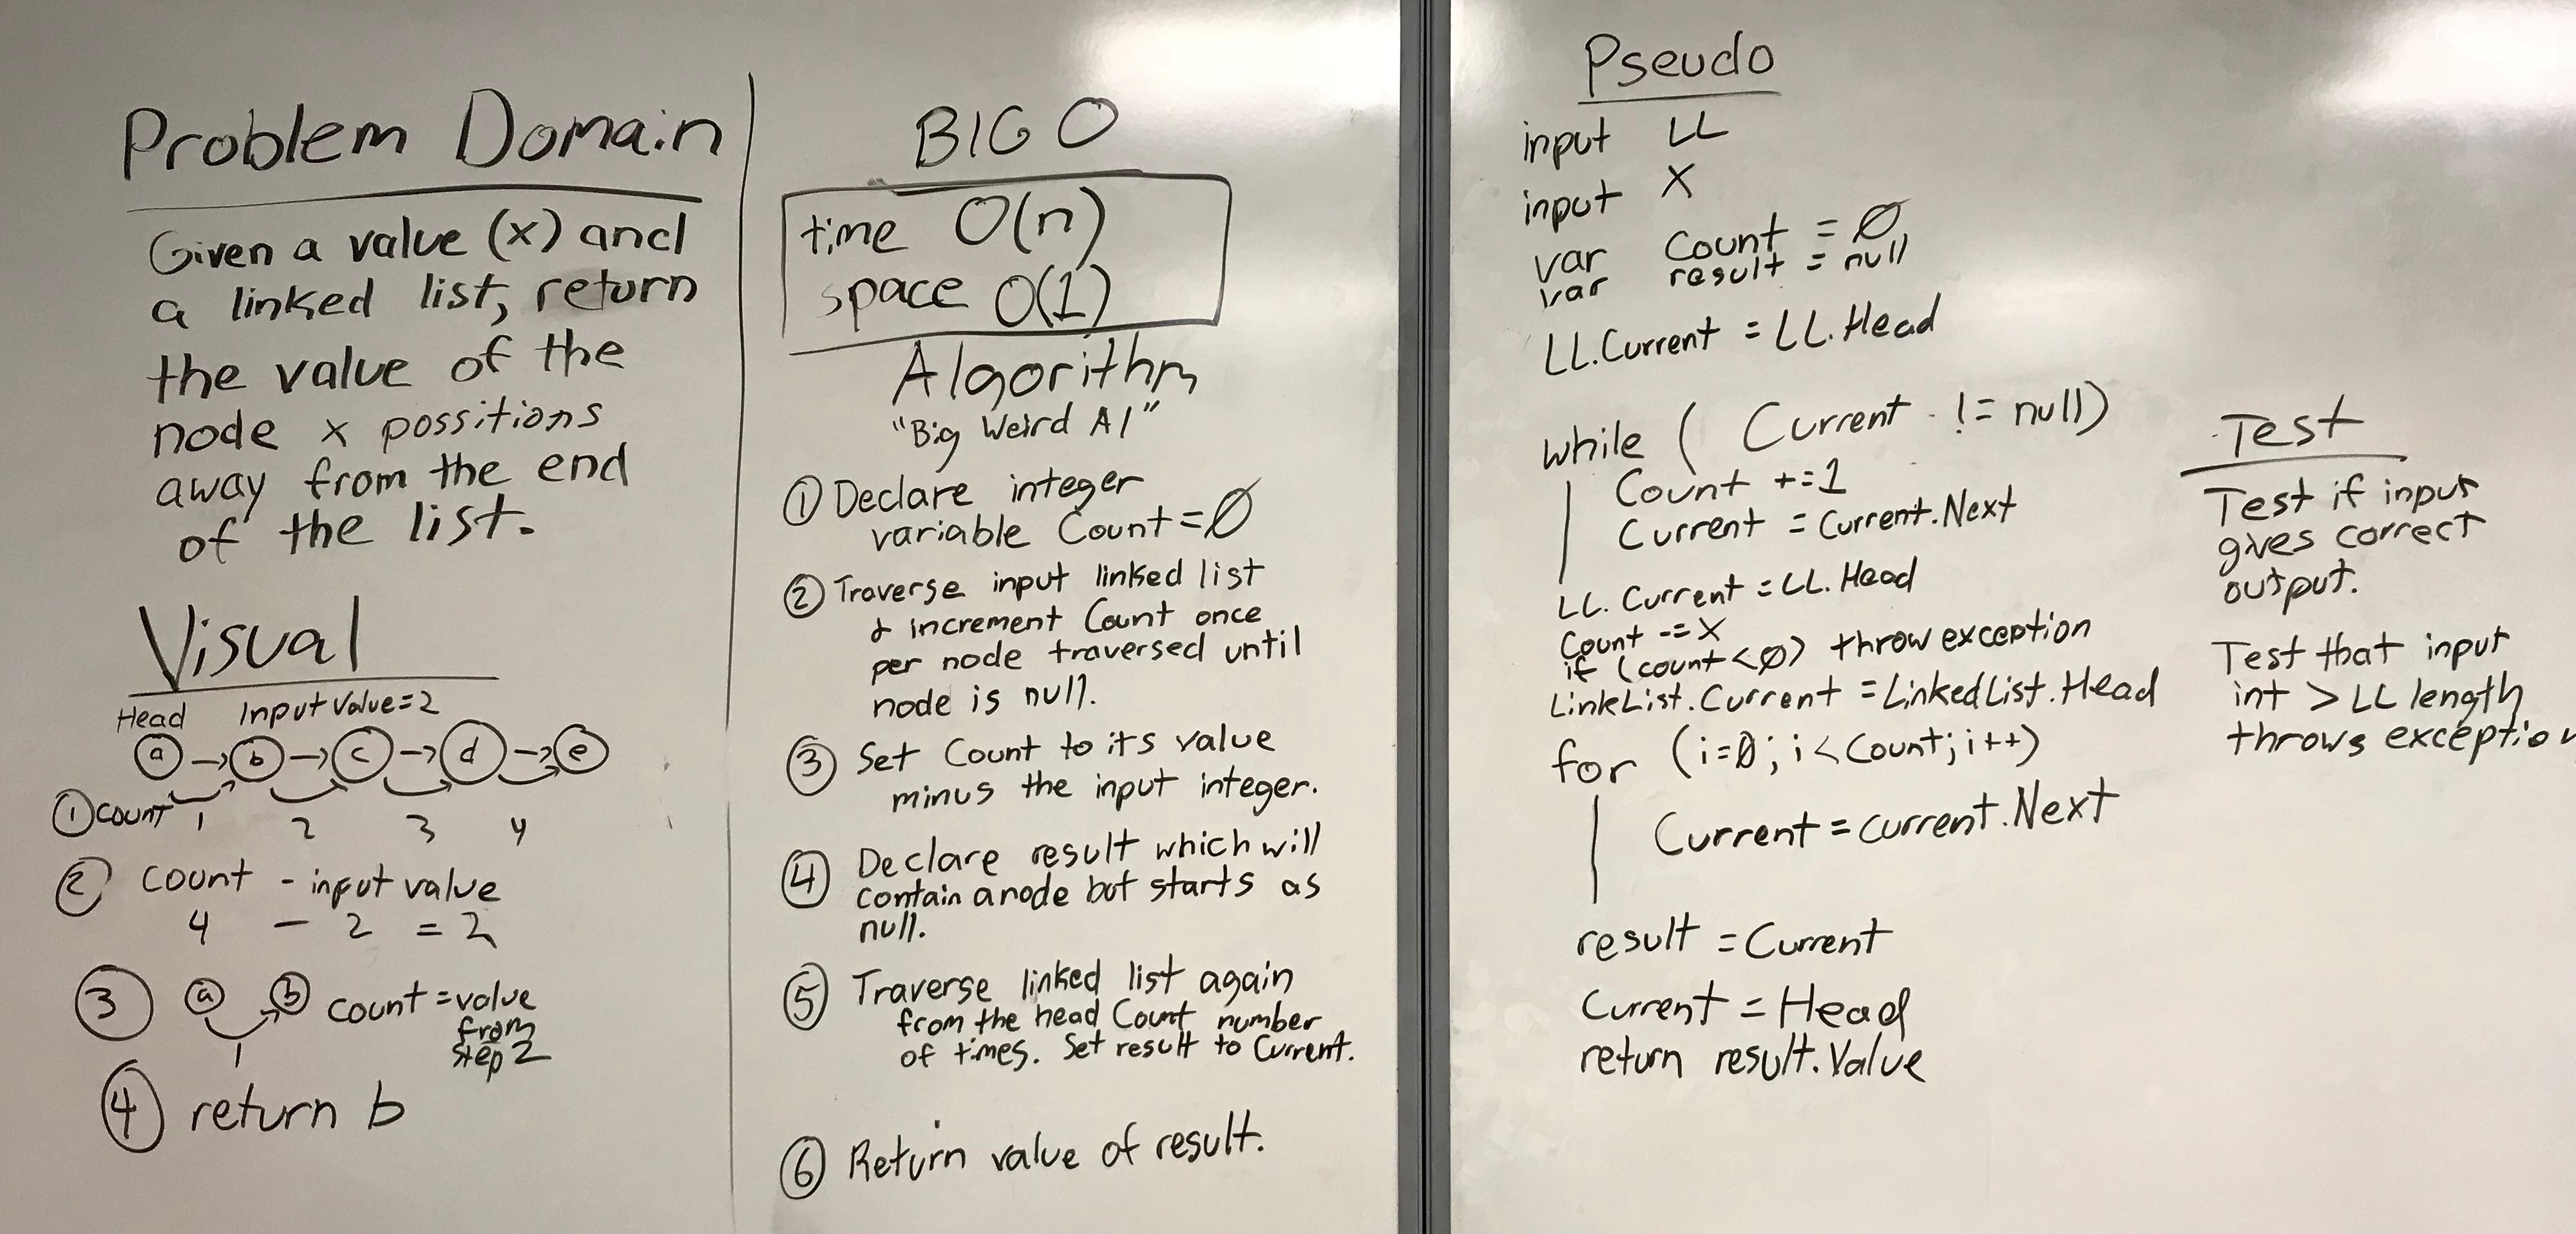 Problem Domain
Given a value (x) and
a linked list, return
the value of the
node x possitions
away from the end
of the list.
Visual
Head Input Value=2
a → b → c → d → e
① count 1 2 3 4
② count - input value
4 - 2 = 2
③ a b count = value
from
step 2
1
④ return b
BIG O
time O(n)
space O(1)
Algorithm
"Big Weird Al"
① Declare integer
variable Count = Ø
② Traverse input linked list
& increment Count once
per node traversed until
node is null.
③ Set Count to its value
minus the input integer.
④ Declare result which will
contain a node but starts as
null.
⑤ Traverse linked list again
from the head Count number
of times. Set result to Current.
⑥ Return value of result.
Pseudo
input LL
input X
var Count = Ø
var result = null
LL.Current = LL.Head
while ( Current != null)
Count +=1
Current = Current.Next
LL.Current = LL.Head
Count -= X
if (count < Ø) throw exception
LinkList.Current = LinkedList.Head
for (i=Ø; i < Count; i++)
Current = current.Next
result = Current
Current = Head
return result.Value
Test
Test if input
gives correct
output.
Test that input
int > LL length
throws exception